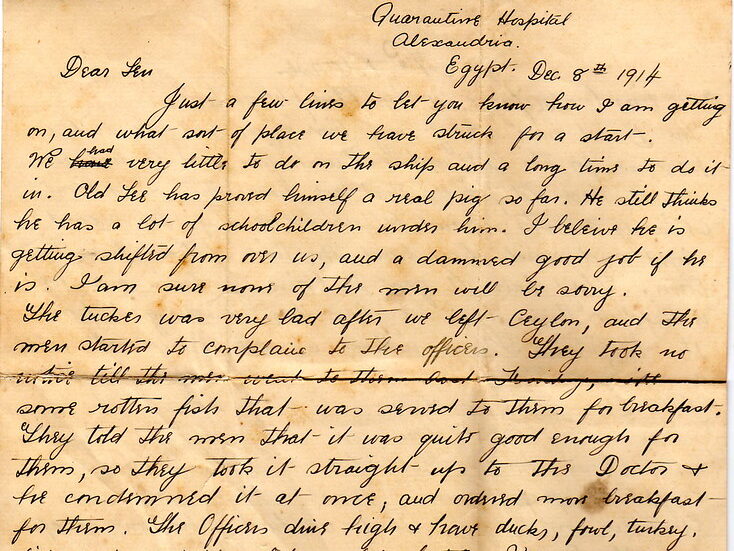 Quarantine Hospital
Alexandria.
Egypt. Dec 8th 1914
Dear Len
Just a few lines to let you know how I am getting
on, and what sort of place we have struck for a start.
We had very little to do on the ship and a long time to do it
in. Old Lee has proved himself a real pig so far. He still thinks
he has a lot of schoolchildren under him. I beleive he is
getting shifted from over us, and a dammed good job if he
is. I am sure none of the men will be sorry.
The tucker was very bad after we left Ceylon, and the
men started to complain to the officers. They took no
notice till the men went to them last with
some rotten fish that was served to them for breakfast.
They told the men that it was quite good enough for
them, so they took it straight up to the Doctor &
he condemned it at once, and ordered more breakfast
for them. The Officers dine high & have ducks, fowl, turkey.